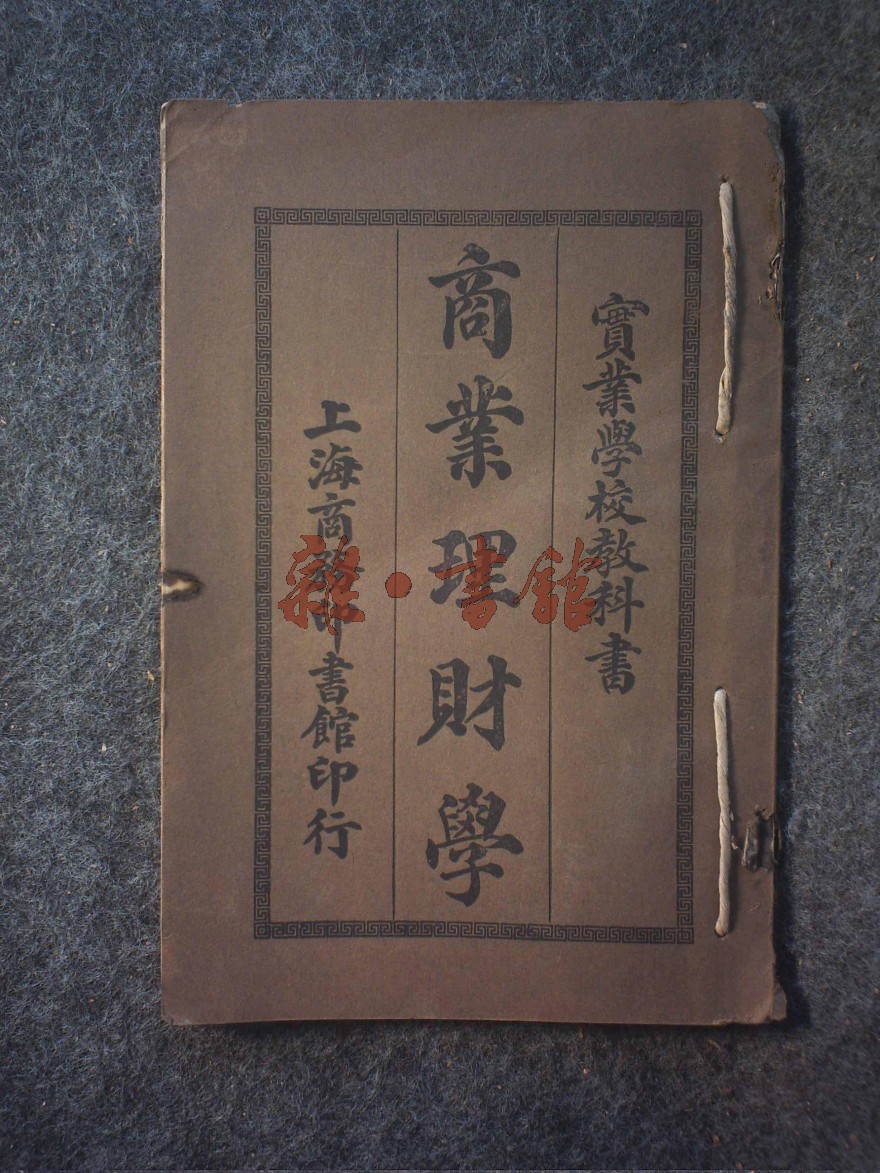 實業學校教科書
商業理財學
上海商務印書館印行
雜·書館